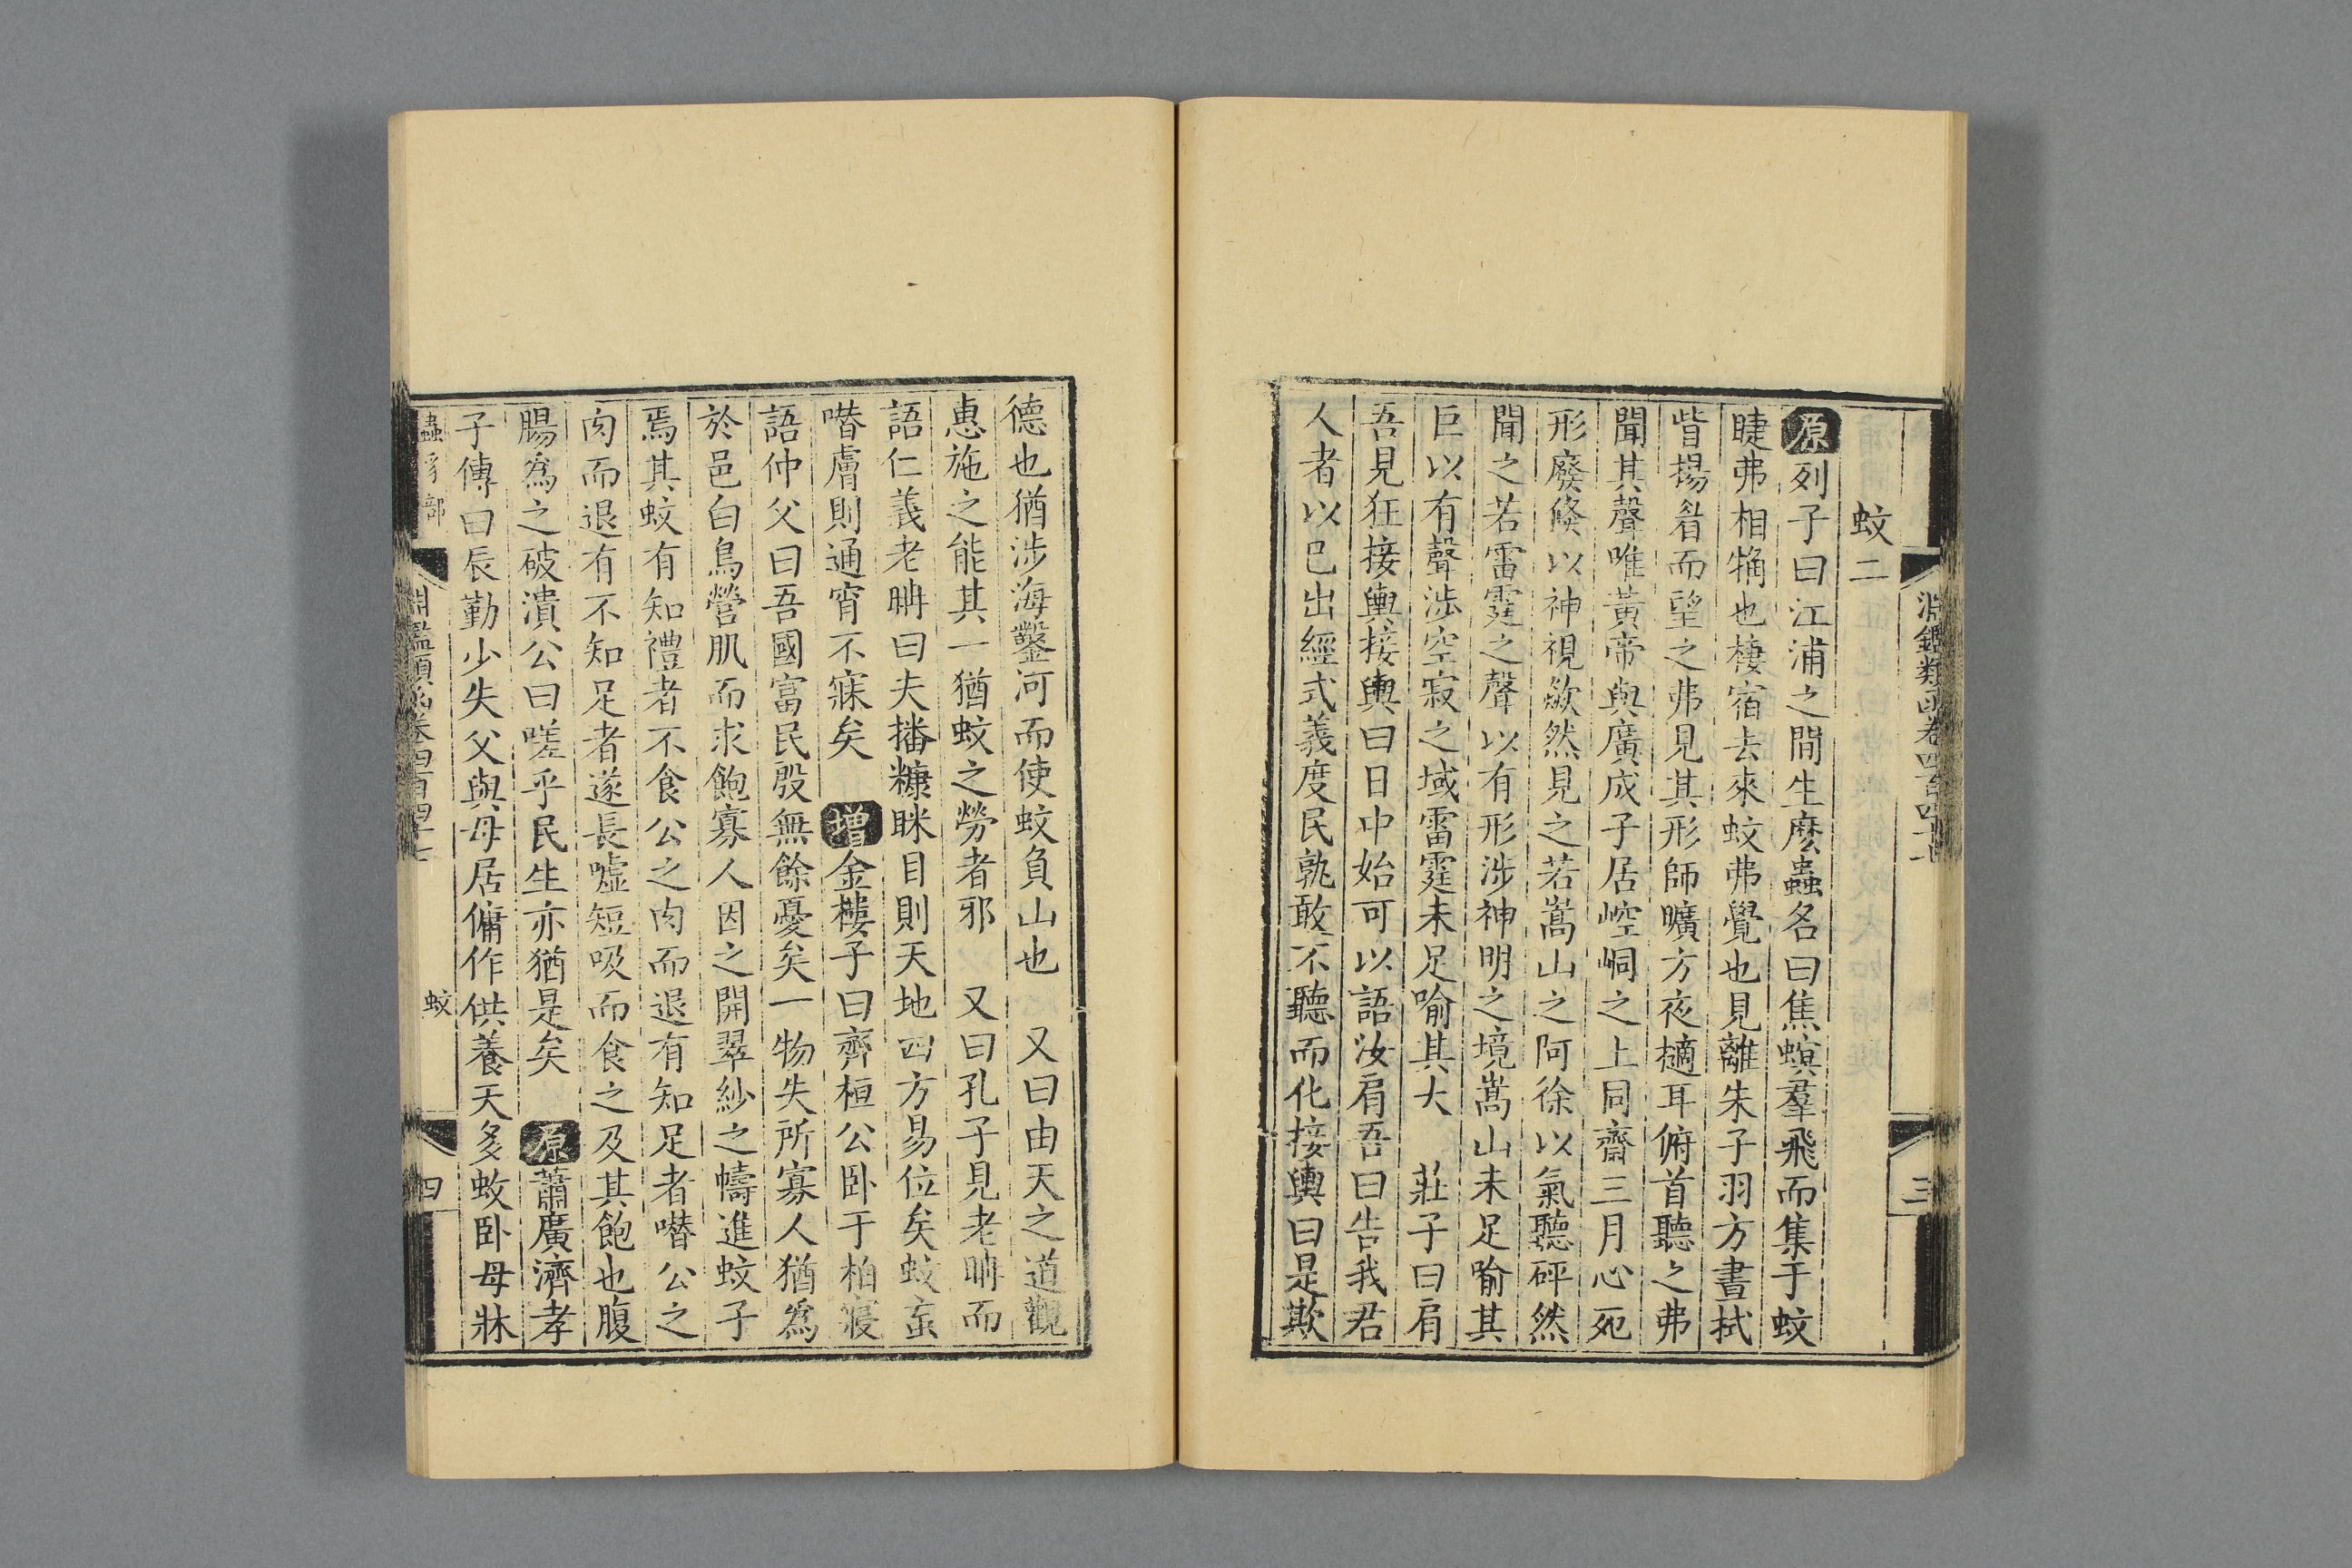 淵鑑類函卷四百四十七
三
蚊二
原列子曰江浦之間生麽蟲名曰焦螟羣飛而集于蚊
睫弗相觸也棲宿去來蚊弗覺也見離朱子羽方晝拭
眥揚眉而望之弗見其形師曠方夜擿耳俯首聽之弗
聞其聲唯黃帝與廣成子居崆峒之上同齋三月心死
形廢倏以神視歘然見之若嵩山之阿徐以氣聽砰然
聞之若雷霆之聲以有形涉神明之境嵩山未足喻其
巨以有聲涉空寂之域雷霆未足喻其大　莊子曰肩
吾見狂接輿接輿曰日中始可以語汝肩吾曰告我君
人者以已出經式義度民孰敢不聽而化接輿曰是欺
德也猶涉海鑿河而使蚊負山也　又曰由天之道觀
惠施之能其一猶蚊之勞者邪　又曰孔子見老聃而
語仁義老聃曰夫播糠眯目則天地四方易位矣蚊䖟
噆膚則通宵不寐矣　增金樓子曰齊桓公卧于柏寢
語仲父曰吾國富民殷無餘憂矣一物失所寡人猶爲
於邑白鳥營肌而求飽寡人因之開翠紗之幬進蚊子
焉其蚊有知禮者不食公之肉而退有知足者噆公之
肉而退有不知足者遂長噓短吸而食之及其飽也腹
腸爲之破潰公曰嗟乎民生亦猶是矣　原蕭廣濟孝
子傳曰辰勤少失父與母居傭作供養天多蚊卧母牀
蟲豸部
淵鑑類函卷四百四十七
蚊
四